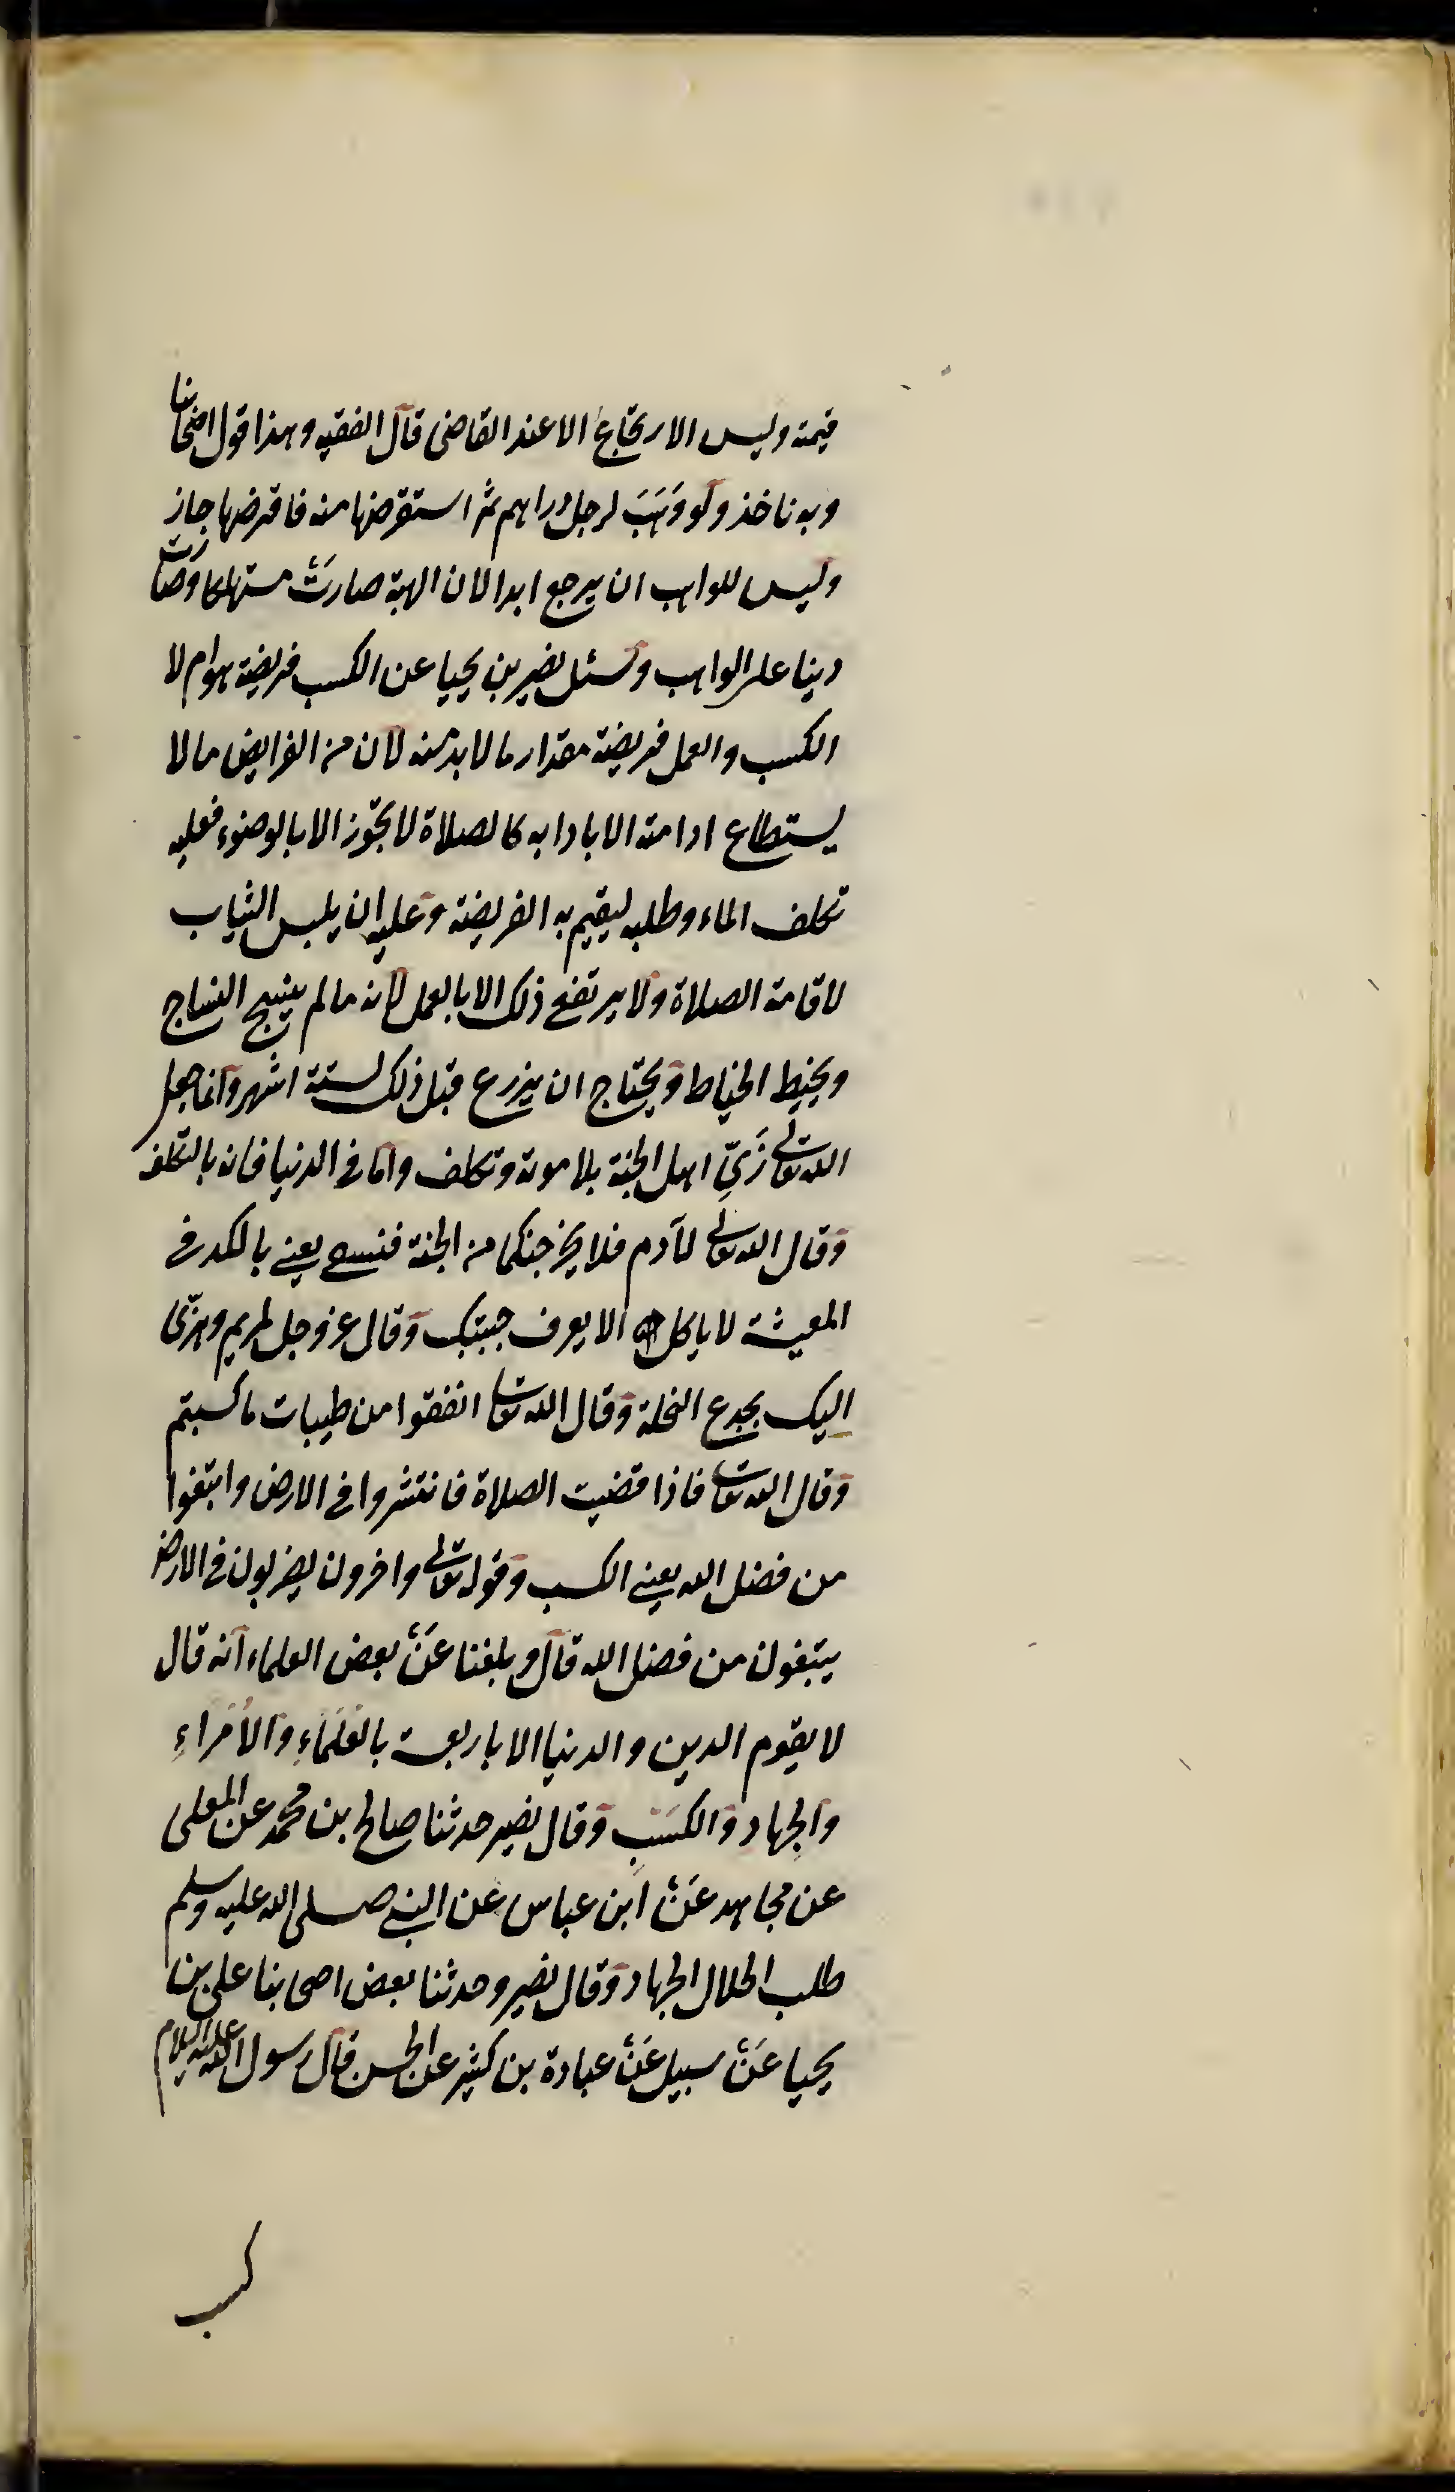 قيمته وليس الارتجاع الا عند القاضى قال الفقيه وهذا قول اصحابنا
وبه ناخذ ولو وَهَبَ لرجل دراهم ثم استقرضها منه فاقرضها جاز
وليس للواهب ان يرجع ابدا لان الهبة صارَتْ مستهلكا وصارت
دينا على الواهب وسئل نصير بن يحيا عن الكسب فريضة هو ام لا
الكسب والعمل فريضة مقدار ما لا بد منه لان من الفرايض ما لا
يستطاع ادامته الا بادابه كالصلاة لا تجوز الا بالوضوء فعليه
تكلف الماء وطلبه ليقيم به الفريضة وعليه ان يلبس الثياب
لاقامة الصلاة ولا يرتفع ذلك الا بالعمل لانه ما لم ينسج النساج
ويخيط الخياط ويحتاج ان يزرع قبل ذلك لستة اشهر وانما جعل
الله تعالى زَيّ اهل الجنة بلا مونة وتكلف واما فى الدنيا فانه بالتكلف
وقال الله تعالى لآدم فلا يخرجنكما من الجنة فتسعى يعنى بالكد فى
المعيشة لا ياكل الا بعرف جبينك وقال عز وجل لمريم وهزى
اليك بجدع النخلة وقال الله تعالى انفقوا من طيبات ما كسبتم
وقال الله تعالى فاذا قضيت الصلاة فانتشروا فى الارض وابتغوا
من فضل الله يعنى الكسب وقوله تعالى واخرون يضربون فى الارض
يبتغون من فضل الله قال وبلغنا عَنْ بعض العلماء انه قال
لا يقوم الدين والدنيا الا باربعة بالعُلَمَاءِ والأُمَراءِ
والجِهاد والكَسْبِ وقال نصير حدثنا صالح بن محمد عن المعلى
عن مجاهد عَنْ ابن عباس عن النبى صلى الله عليه وسلم
طلب الحلال الجهاد وقال نصير وحدثنا بعض اصحابنا على بن
يحيا عَنْ سبيل عَنْ عبادة بن كثير عن الحسن قال رسول الله عليه السلام
كسب